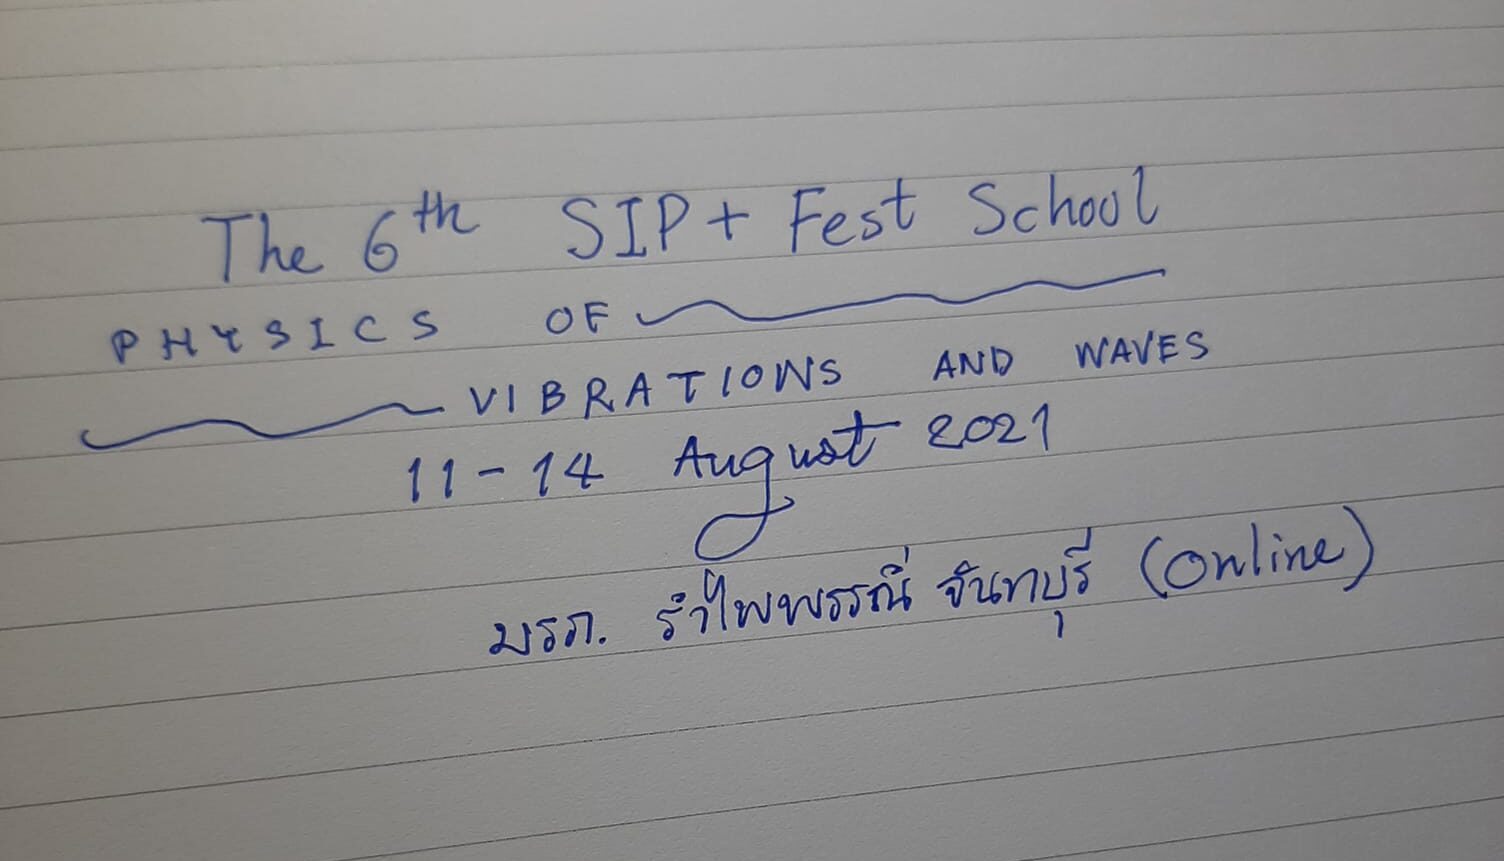 The 6th SIP+ Fest School
PHYSICS OF
VIBRATIONS AND WAVES
11-14 August 2021
มรภ. รำไพพรรณี จันทบุรี (online)